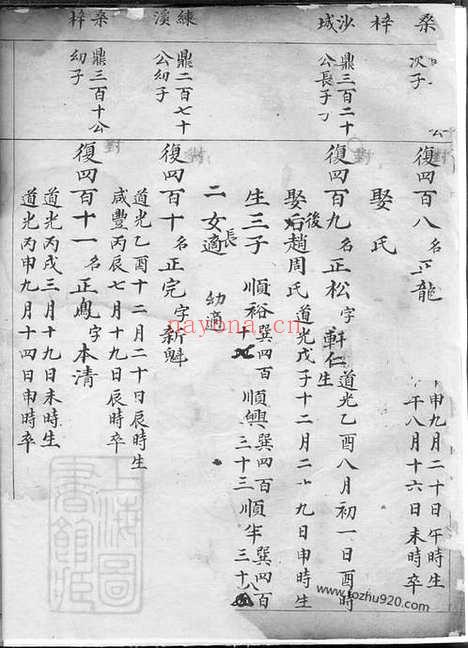 桑梓
次子
公
復四百八名正龍
申九月二十日午時生
午八月十六日未時卒
娶氏
沙城
鼎三百二十公長子
復四百九名正松字軒仁生
道光乙酉八月初一日酉時
娶后趙周氏道光戊子十二月二十九日申時生
後
生三子順裕巽四百十
順興巽四百三十三
順年巽四百三十八
二女長適幼適
練溪
鼎二百七十公幼子
對
復四百十名正完字新魁
道光乙酉十二月二十日辰時生
咸豐丙辰七月十九日辰時卒
桑梓
鼎三百十公幼子
對
復四百十一名正鳳字本清
道光丙戌三月十九日未時生
道光丙申九月十四日申時卒
上海圖書館藏
nayona.cn
www.tozhu920.com